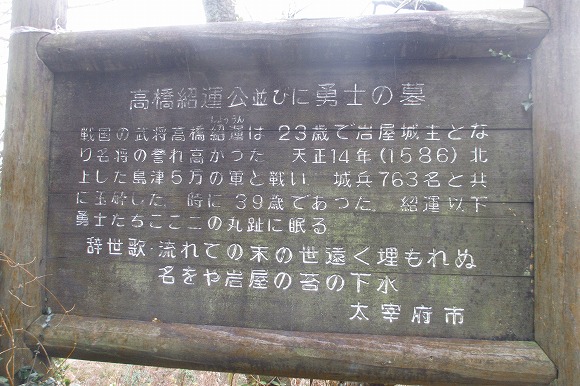 高橋紹運公並びに勇士の墓
じょううん
戦国の武将高橋紹運は 23歳で岩屋城主とな
り名将の誉れ高かった 天正14年(1586)北
上した島津5万の軍と戦い 城兵763名と共
に玉砕した 時に39歳であった 紹運以下
勇士たちここ二の丸趾に眠る
辞世歌・流れての末の世遠く埋もれぬ
名をや岩屋の苔の下水
太宰府市